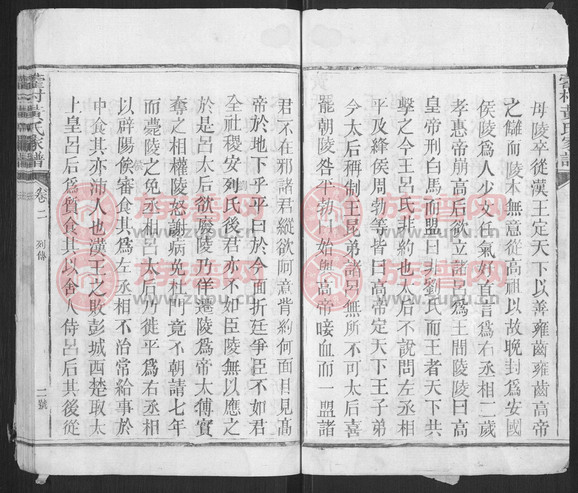 母陵卒從漢王定天下以善雍齒雍齒高帝
之讎而陵本無意從高祖以故晚封爲安國
侯陵爲人少文任氣好直言爲右丞相二歲
孝惠帝崩高后欲立諸呂爲王問陵陵曰高
皇帝刑白馬而盟曰非劉氏而王者天下共
擊之今王呂氏非約也太后不說問左丞相
平及絳侯周勃等皆曰高帝定天下王子弟
今太后稱制王昆弟諸呂無所不可太后喜
罷朝陵咎平勃曰始與高帝唼血而盟諸
君不在邪諸君縱欲阿意背約何面目見高
帝於地下乎平曰於今面折廷爭臣不如君
全社稷安劉氏後君亦不如臣陵無以應之
於是呂太后欲廢陵乃佯遷陵爲帝太傅實
奪之相權陵怒謝病免杜門竟不朝請七年
而薨陵之免丞相呂太后乃徙平爲右丞相
以辟陽侯審食其爲左丞相不治常給事於
中食其亦沛人也漢王之敗彭城西楚取太
上皇呂后爲質食其以舍人侍呂后其後從
村黃氏家譜
卷二
列傳
二號
村黃氏家譜
族譜網
www.zupu.cn
族譜網
www.zupu.cn